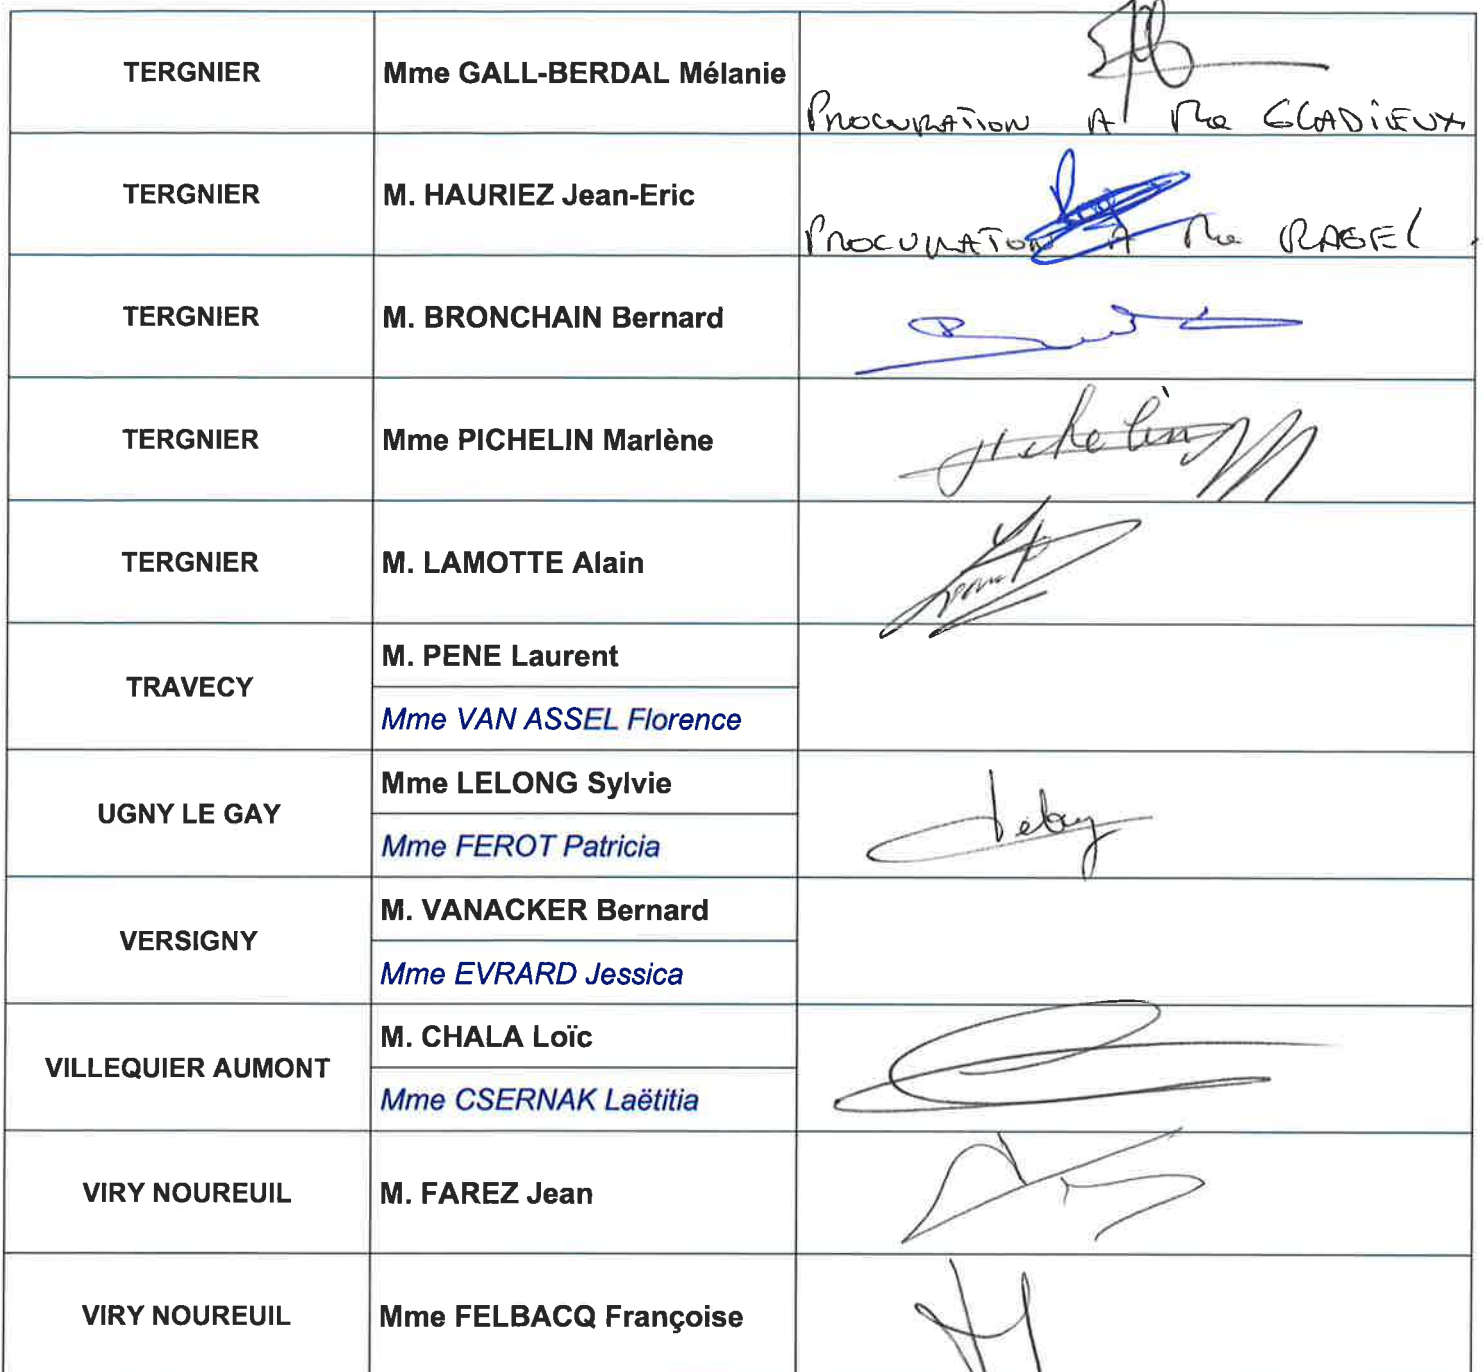 TERGNIER Mme GALL-BERDAL Mélanie
PROCURATION A Me GLADIEUX
TERGNIER M. HAURIEZ Jean-Eric
PROCURATION A Me RAGEL
TERGNIER M. BRONCHAIN Bernard
TERGNIER Mme PICHELIN Marlène
TERGNIER M. LAMOTTE Alain
TRAVECY M. PENE Laurent
Mme VAN ASSEL Florence
UGNY LE GAY Mme LELONG Sylvie
Mme FEROT Patricia
VERSIGNY M. VANACKER Bernard
Mme EVRARD Jessica
VILLEQUIER AUMONT M. CHALA Loïc
Mme CSERNAK Laëtitia
VIRY NOUREUIL M. FAREZ Jean
VIRY NOUREUIL Mme FELBACQ Françoise